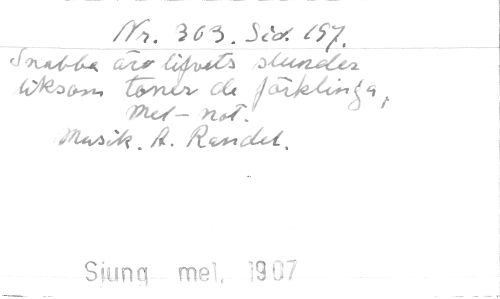 Nr. 303. Sid. 157.
Snabba äro lifvets stunder
liksom toner de förklinga,
Mel- not.
Musik. A. Randel.
Sjung mel, 1907